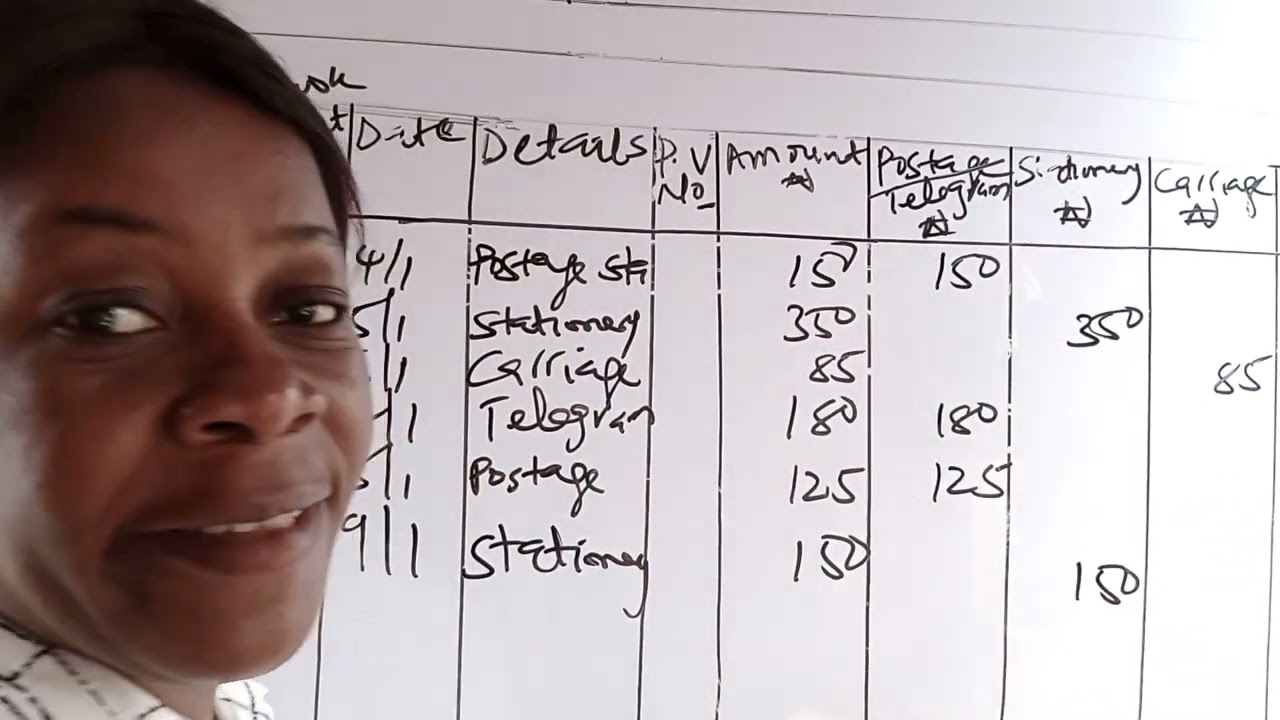 Date Details P.V No Amount ₦ Postage/Telegram ₦ Stationery ₦ Carriage ₦
4/1 Postage sta 150 150
5/1 Stationery 350 350
/1 Carriage 85 85
/1 Telegram 180 180
/1 Postage 125 125
9/1 Stationery 150 150